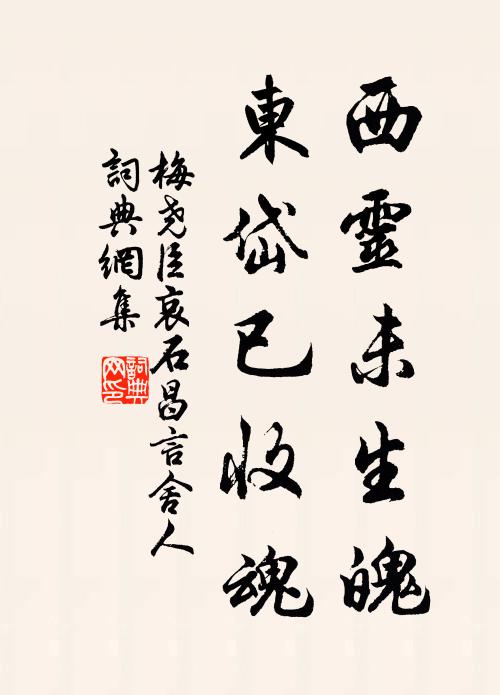 西靈未生魄
東岱已收魂
梅堯臣哀石昌言舍人
詞典網集
詞典
网印